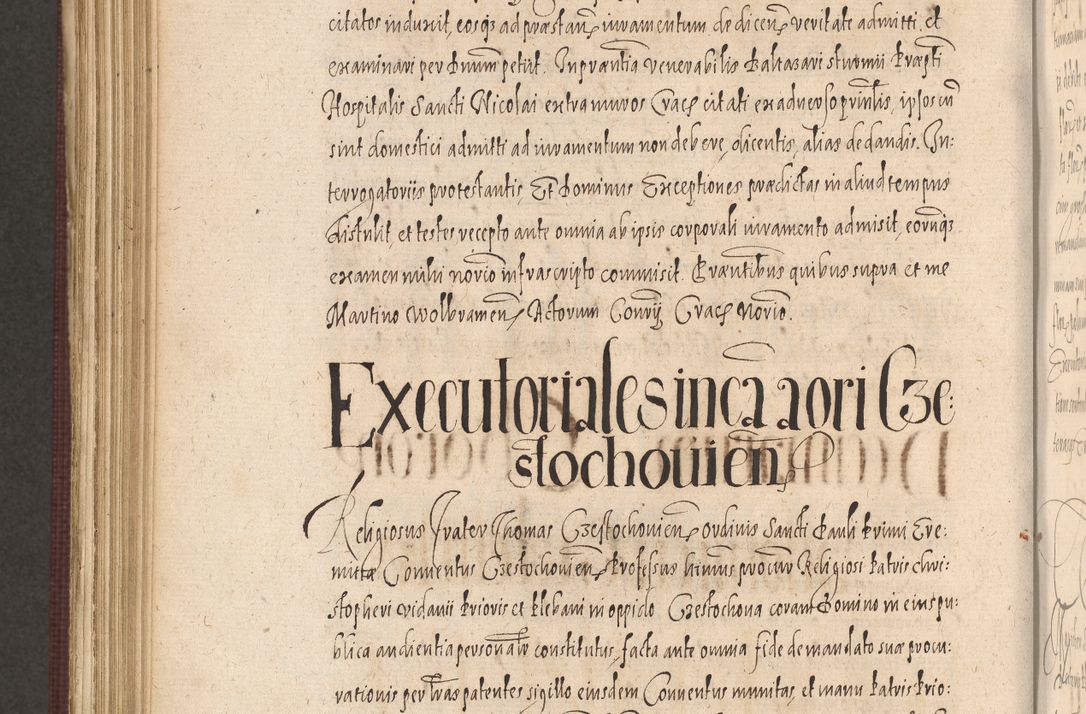 citatos induxit, eosq3 ad præstan. iuramentum de dicen. veritate admitti, et
examinari per Dnum petiit. In præntia venerabilis Baltazari sturmii Præpti
Hospitalis Sancti Nicolai extra muros Crac. citati ex adverso prinlis, ipsos cū
sint domestici admitti ad iuramentum non debere, dicentis, alias de dandis. In:
terrogatoriis protestantis, Et Dominus Exceptiones prædictas in aliud tempus
distulit, et testes recepto ante omnia ab ipsis corporali iuramento admisit, eorūq3
examen mihi notrio infrascripto commisit. Præntibus quibus supra et me
Martino Wolbramen. Actorum Consrÿ Crac. Notrio.
Executoriales in ca aori Cze:
stochouien.
Religiosus Frater Thomas Czestochouien. ordinis Sancti Pauli Primi Ere:
mitæ Conuentus Czestochouien. Professus
Religiosi Patris Chri:
stopheri vidauii Prioris et Plebani in oppido Czestochoua coram Domino in eius pu:
blica audientia personalr constitutus, facta ante omnia fide de mandato suæ procu:
rationis per lras patentes sigillo eiusdem Conuentus munitas, et manu Patris Prio: